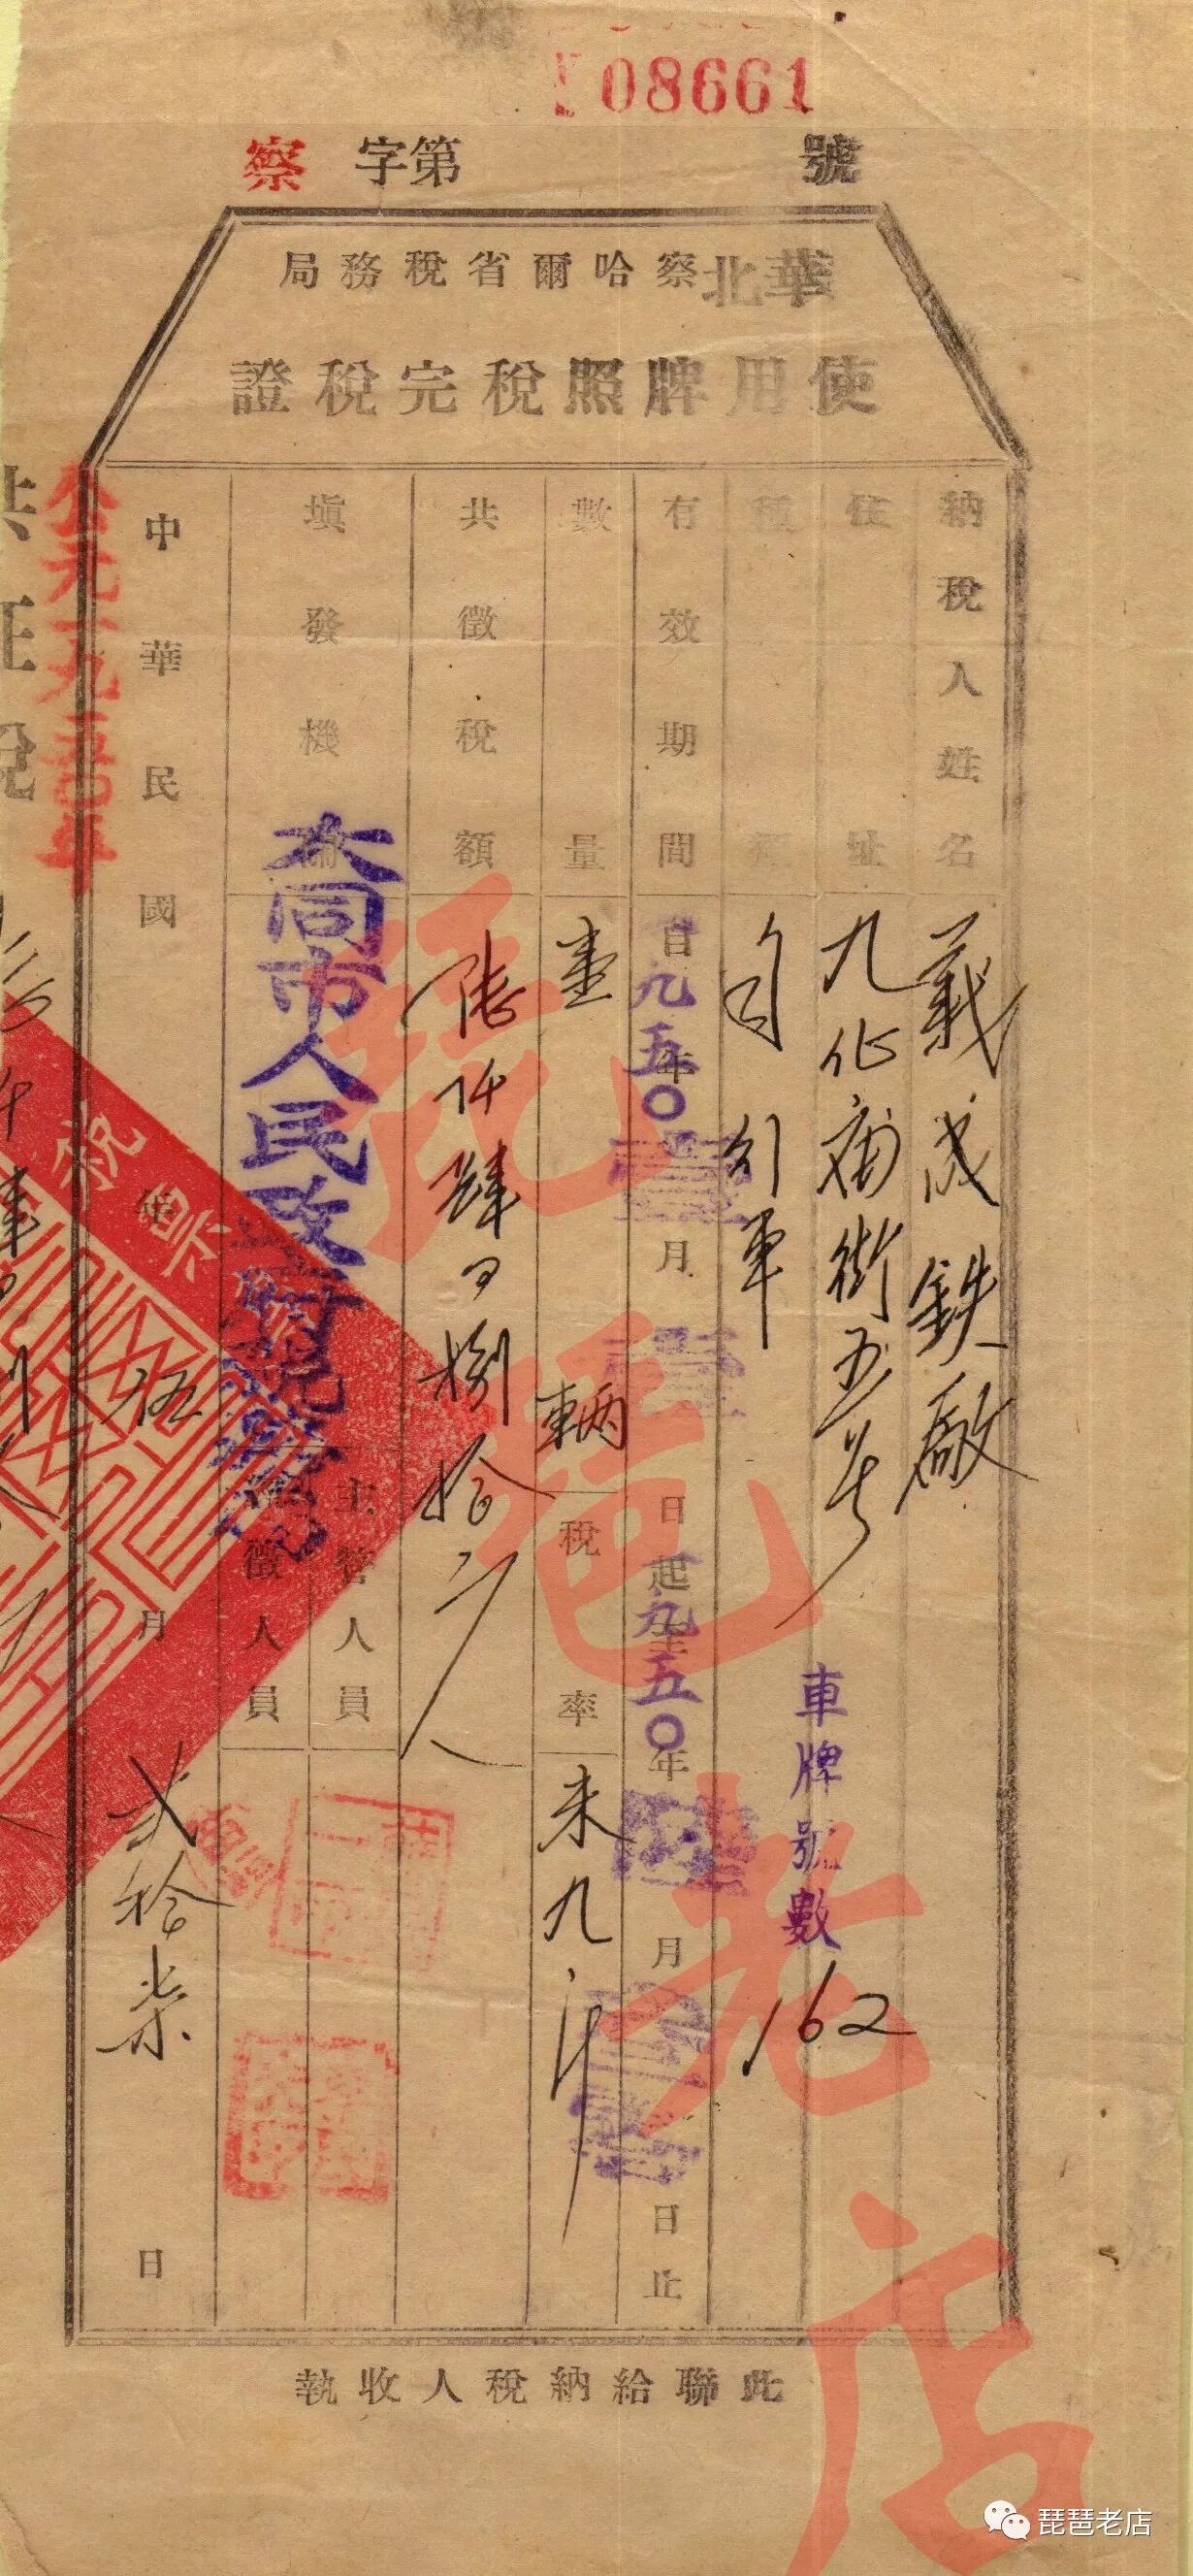 08661
察 字第 號
華北察哈爾省稅務局
使用牌照稅完稅證
納稅人姓名 義成鉄廠
住址 九仙廟街五号
車牌號數 162
種類 自行車
有效期間 自一九五〇年 月 日起至一九五〇年 月 日止
數量 壹輛 稅率 米九斤
共徵稅額 陸仟肆百捌拾元
填發機關 大同市人民政府稅務局
主管人員
經徵人員
中華民國 年 伍 月 貳拾柒 日
公元一九五〇年
此聯給納稅人收執
琵琶老店
琵琶老店